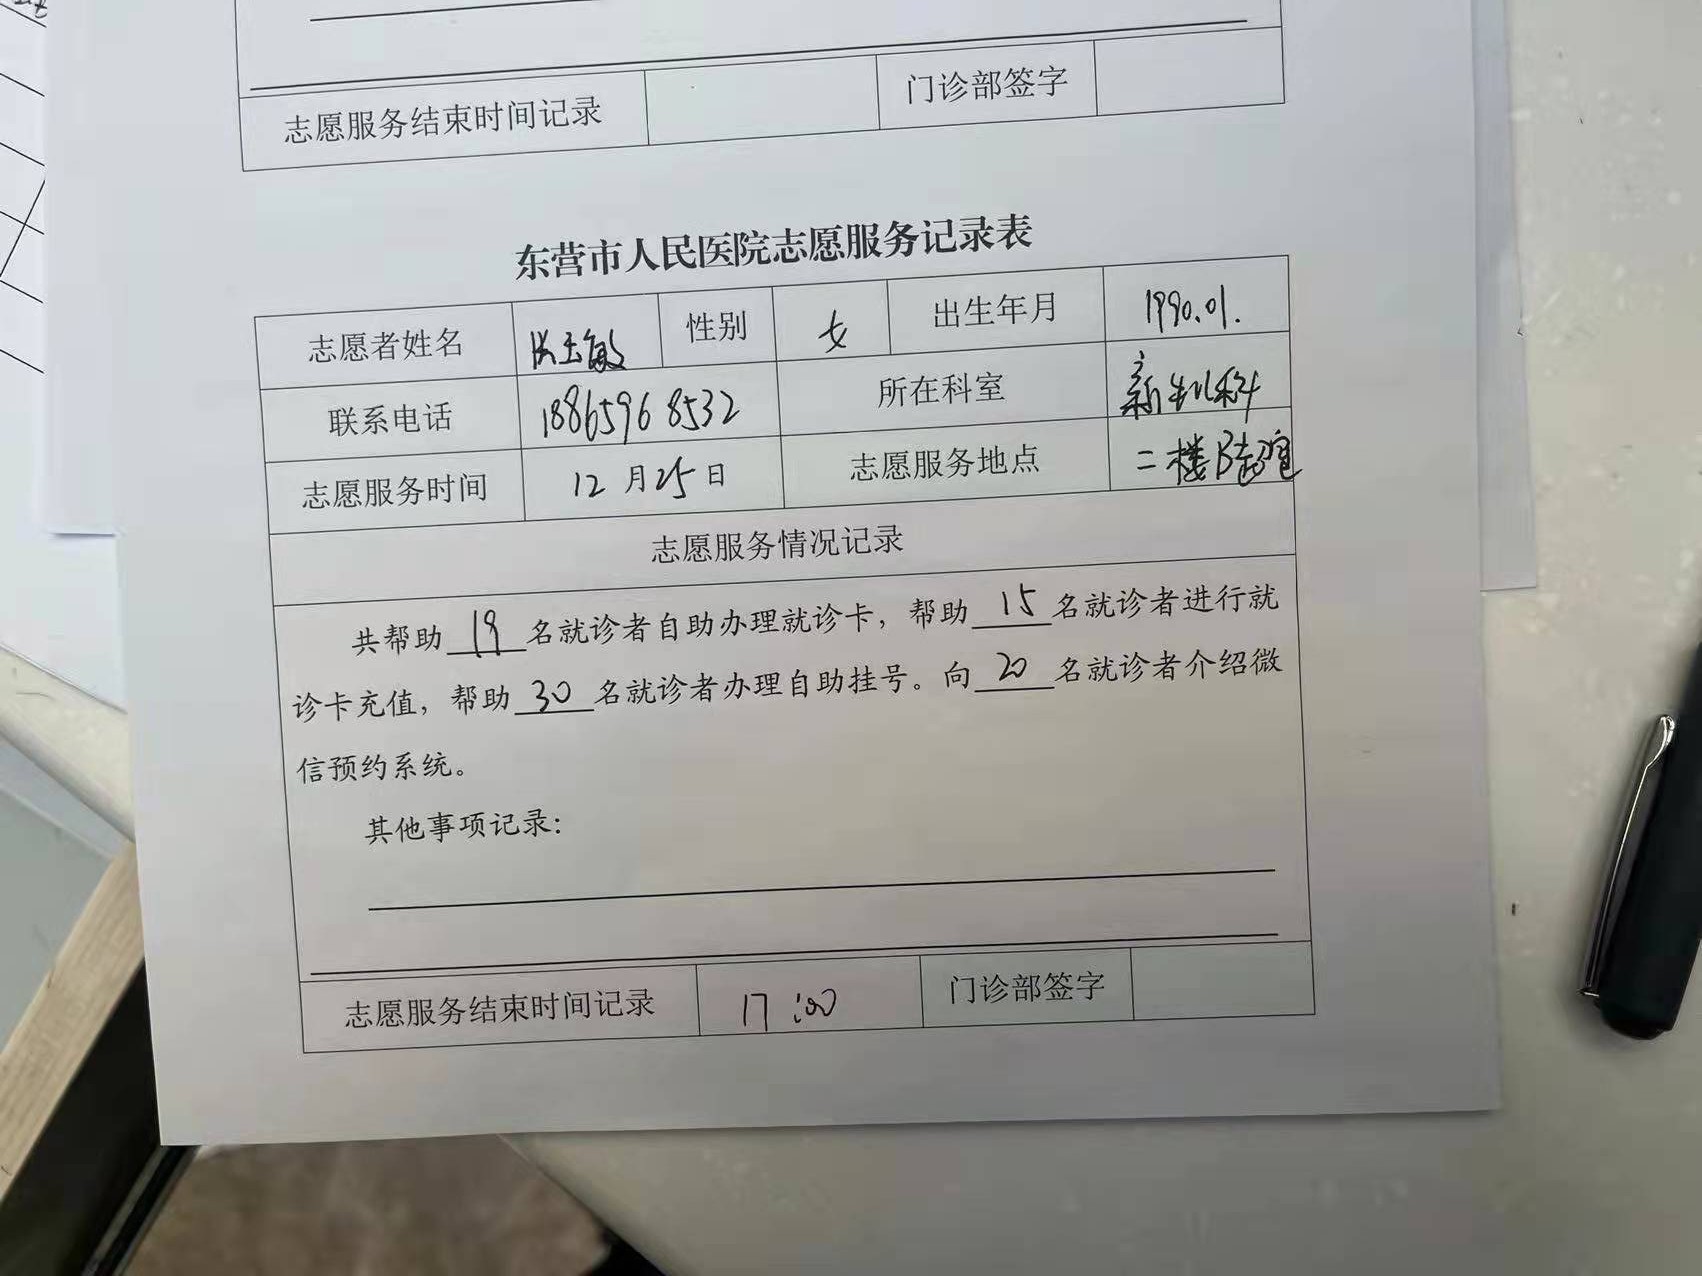 志愿服务结束时间记录 门诊部签字
东营市人民医院志愿服务记录表
志愿者姓名 玉敏 性别 女 出生年月 1990.01.
联系电话 18865968532 所在科室 新机科
志愿服务时间 12月25日 志愿服务地点 二楼B超室
志愿服务情况记录
共帮助 19 名就诊者自助办理就诊卡，帮助 15 名就诊者进行就
诊卡充值，帮助 30 名就诊者办理自助挂号。向 20 名就诊者介绍微
信预约系统。
其他事项记录：
志愿服务结束时间记录 17:00 门诊部签字